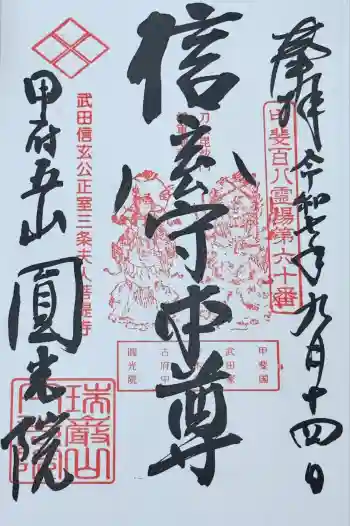 奉拝 令和七年九月十四日
甲斐百八霊場第六十番
信玄守本尊
武田信玄公正室三条夫人菩提寺
甲府五山 圓光院
甲斐國
武田家
古府中
圓光院
瑞巌山